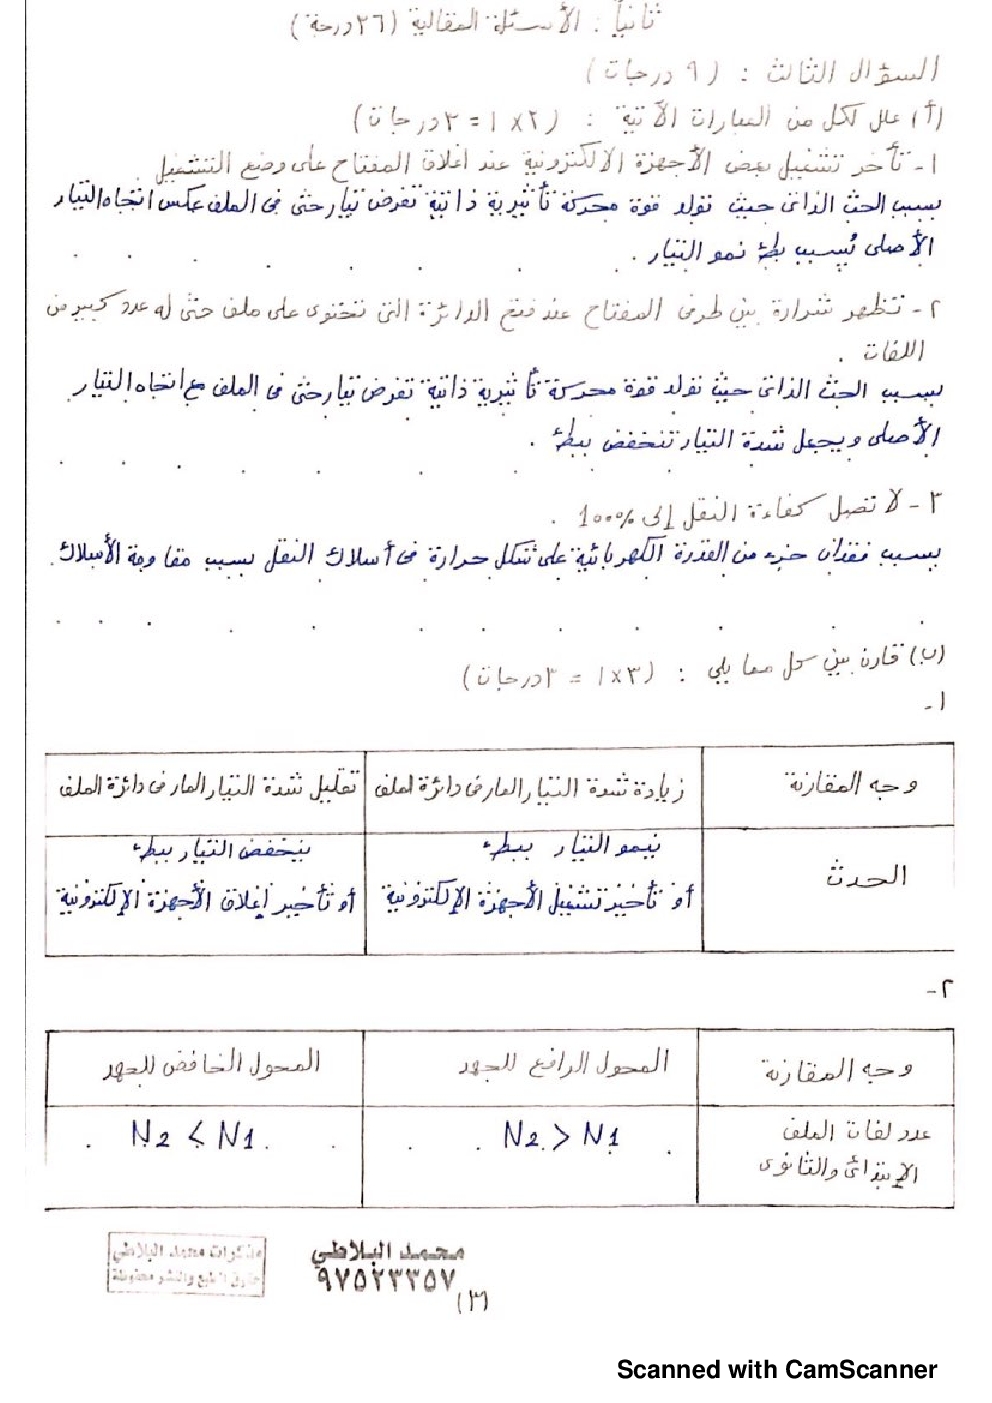 ثانياً : الأسئلة المقالية (٣٦درجة)
السؤال الثالث : (٩ درجات)
(أ) علل لكل من العبارات الآتية : (٣×١ = ٣درجات)
١- تأخر تشغيل بعض الأجهزة الالكترونية عند اغلاق المفتاح على وضع التشغيل .
بسبب الحث الذاتى حيث تولد قوة محركة تأثيرية ذاتية تفرض تيار حثى فى الملف عكس اتجاه التيار
الأصلى يُسبب بطئ نمو التيار .
٢- تظهر شرارة بين طرفى المفتاح عند فتح الدائرة التى تحتوى على ملف حثى له عدد كبير من
اللفات .
بسبب الحث الذاتى حيث تولد قوة محركة تأثيرية ذاتية تفرض تيار حثى فى الملف مع اتجاه التيار
الأصلى ويجعل شدة التيار تنخفض ببطئ .
٣- لا تصل كفاءة النقل إلى 100% .
بسبب فقدان جزء من القدرة الكهربائية على شكل حرارة فى أسلاك النقل بسبب مقاومة الأسلاك.
(ب) قارن بين كل مما يلي : (٣×١ = ٣درجات)
١-
وجه المقارنة زيادة شدة التيار المار فى دائرة لملف تقليل شدة التيار المار فى دائرة الملف
الحدث ينمو التيار ببطء ينخفض التيار ببطء
أو تأخير تشغيل الأجهزة الإلكترونية أو تأخير إغلاق الأجهزة الإلكترونية
٢-
وجه المقارنة المحول الرافع للجهد المحول الخافض للجهد
عدد لفات الملف N2 > N1 N2 < N1
الإبتدائى والثانوى
مذكرات محمد البلاطي
حقوق الطبع والنشر محفوظة
محمد البلاطي
٩٧٥٢٣٣٥٧
(٣)
Scanned with CamScanner